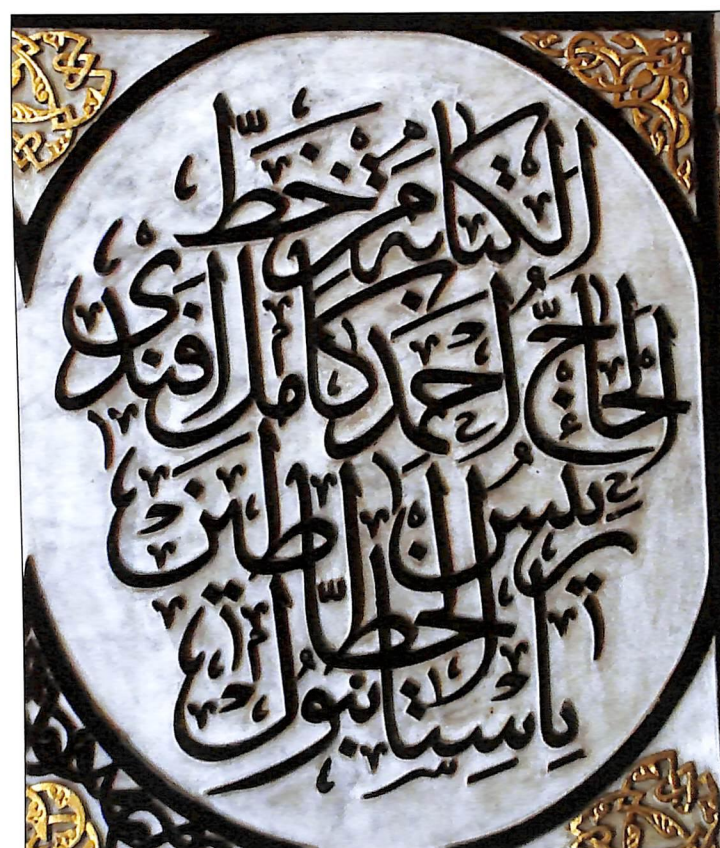 الكتابة من خطّ
الحاجّ أحمد كامل أفندي
رئيس الخطّاطين
بإستانبول